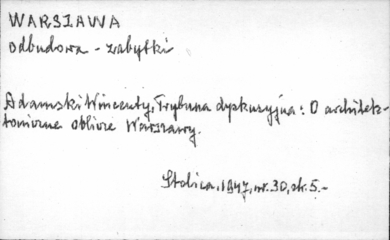 WARSZAWA
odbudowa - zabytki
Adamski Wincenty, Trybuna dyskusyjna: O architek-
toniczne oblicze Warszawy.
Stolica, 1947, nr. 30, str. 5.-